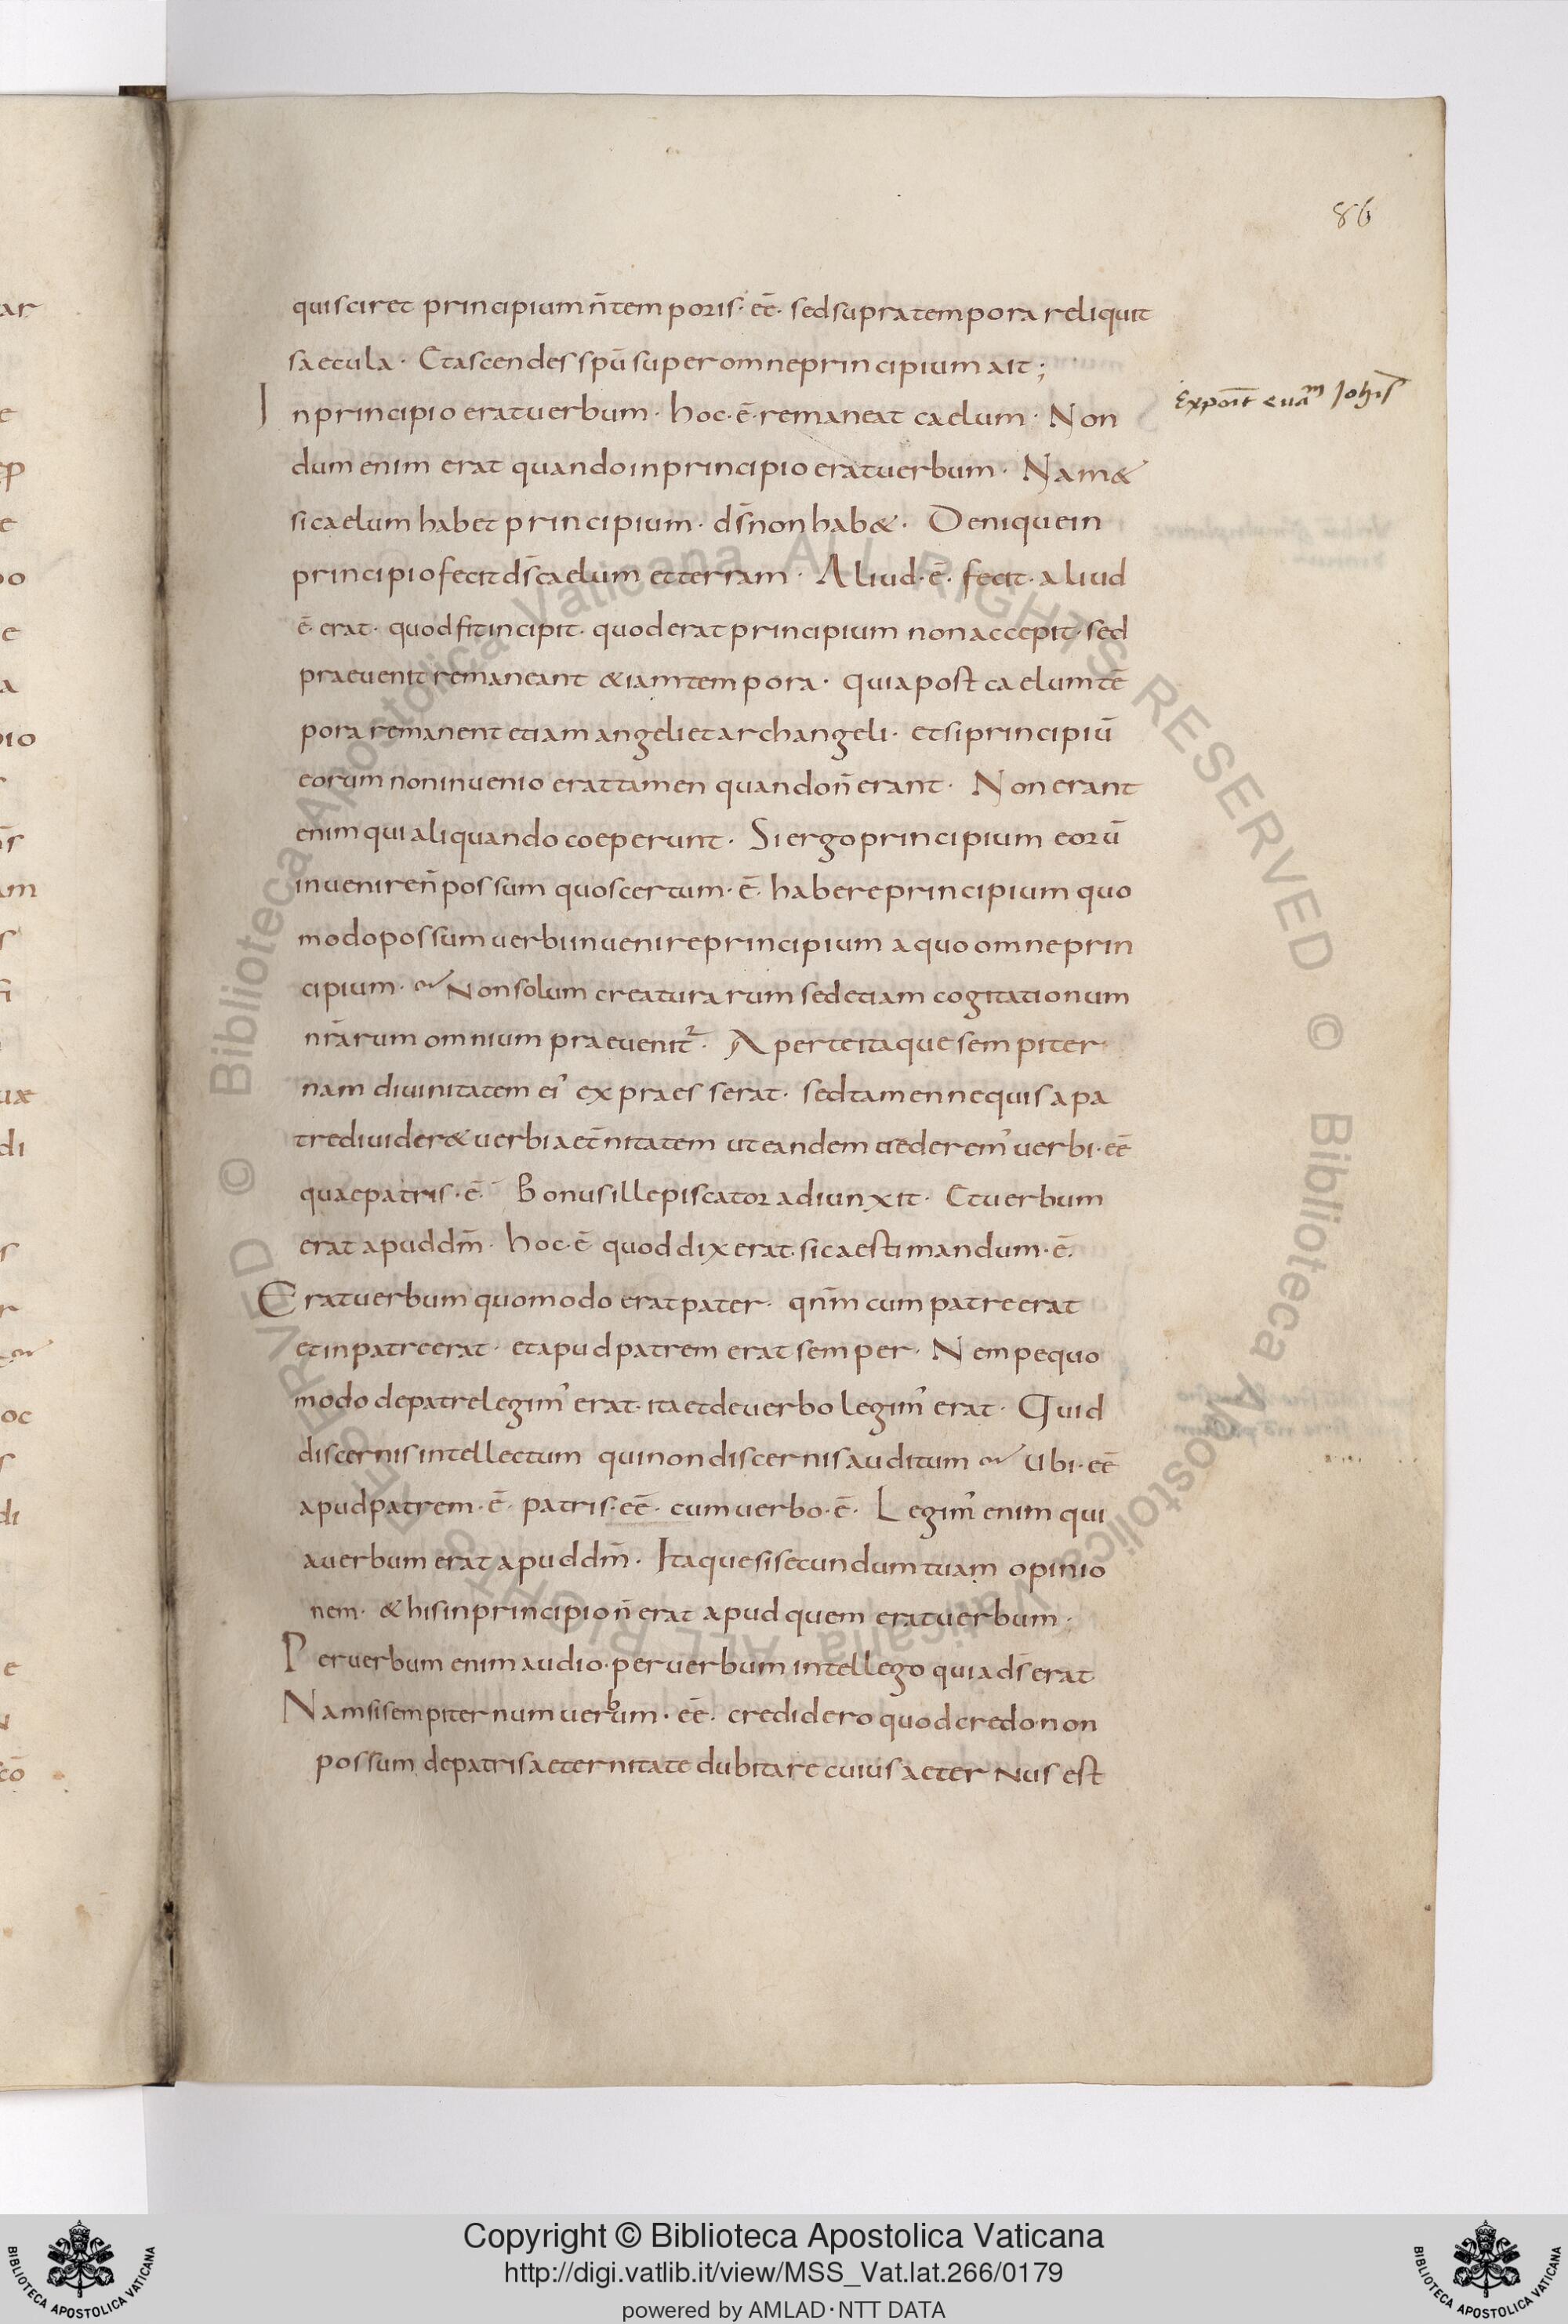 86
quis ciret principium n̄ temporis· eē· sed supra tempora reliquit
saecula· Et ascendes spū super omne principium ait;
In principio erat uerbum· hoc·ē· remaneat caelum· Non
Exponit̄ euāᵐ Joh̄is
dum enim erat quando in principio erat uerbum· Nam &
si caelum habet principium· ds̄ non hab&· Denique in
principio fecit ds̄ caelum et terram· Aliud·ē· fecit· aliud
ē· erat· quod fit incipit· quod erat principium non accepit· sed
praeuenit remaneant &iam tempora· quia post caelum tē
pora remanent etiam angeli et archangeli· et si principiū
eorum non inuenio erat tamen quando n̄ erant· Non erant
enim qui aliquando coeperunt· Si ergo principium eorū
inuenire n̄ possum quos certum·ē· habere principium quo
modo possum uerbi inuenire principium a quo omne prin
cipium· Non solum creaturarum sed etiam cogitationum
nr̄arum omnium praeuenit· Aperte itaque sempiter
nam diuinitatem ei' expraesserat· sed tamen ne quis a pa
tre diuider& uerbi aet̄nitatem ut eandem crederem' uerbi·eē
quae patris·ē· Bonus ille piscator adiunxit· Et uerbum
erat apud dm̄· hoc·ē quod dixerat· sic aestimandum·ē·
Erat uerbum quomodo erat pater· qnm̄ cum patre erat
et in patre erat· et apud patrem erat semper· Nempe quo
modo de patre legim' erat· ita et de uerbo legim' erat· Quid
discernis intellectum qui non discernis auditum Ubi·eē
apud patrem·ē· patris·eē· cum uerbo·ē· Legim' enim qui
a uerbum erat apud dm̄· Itaque si secundum tuam opinio
nem· & his in principio n̄ erat apud quem erat uerbum·
Per uerbum enim audio· per uerbum intellego quia ds̄ erat
Nam si sempiternum uerbum· eē· credidero quod credo· non
possum de patris aeternitate dubitare cuius aeternus est
Copyright © Biblioteca Apostolica Vaticana
http://digi.vatlib.it/view/MSS_Vat.lat.266/0179
powered by AMLAD·NTT DATA
BIBLIOTECA APOSTOLICA VATICANA
BIBLIOTECA APOSTOLICA VATICANA
© Biblioteca Apostolica Vaticana ALL RIGHTS RESERVED © Biblioteca Apostolica Vaticana ALL RIGHTS RESERVED